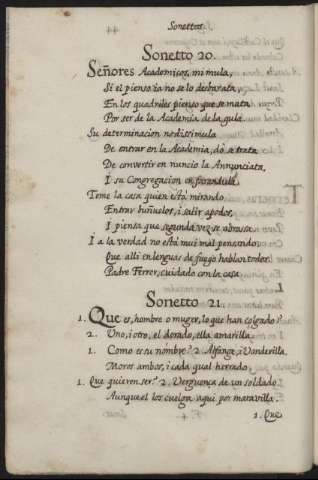 Sonettos.
Sonetto 20.
Señores Academicos, mi mula,
Si el pienso ia no se lo desbarata,
En los quadriles pienso que se mata
Por ser de la Academia de la gula.
Su determinacion no disimula
De entrar en la Academia, do se trata
De convertir en nuncio la Annunciata,
I su Congregacion en farandula.
Teme la casa quien está mirando
Entrar buñuelos, i salir apodos,
I piensa que segunda vez se abrasa.
I a la verdad no está mui mal pensando,
Que alli en lenguas de fuego hablan todos.
Padre Ferrer, cuidado con la casa.
Sonetto 21.
1. Que es, hombre o muger, lo que han colgado?
2. Uno, i otro, el dorado, ella amarilla.
1. Como es su nombre? 2. Alfange, i Vanderilla.
Moros ambos, i cada qual herrado.
1. Que quieren ser? 2. Verguença de un soldado.
Aunque los cuelga aqui por maravilla.
1. Que